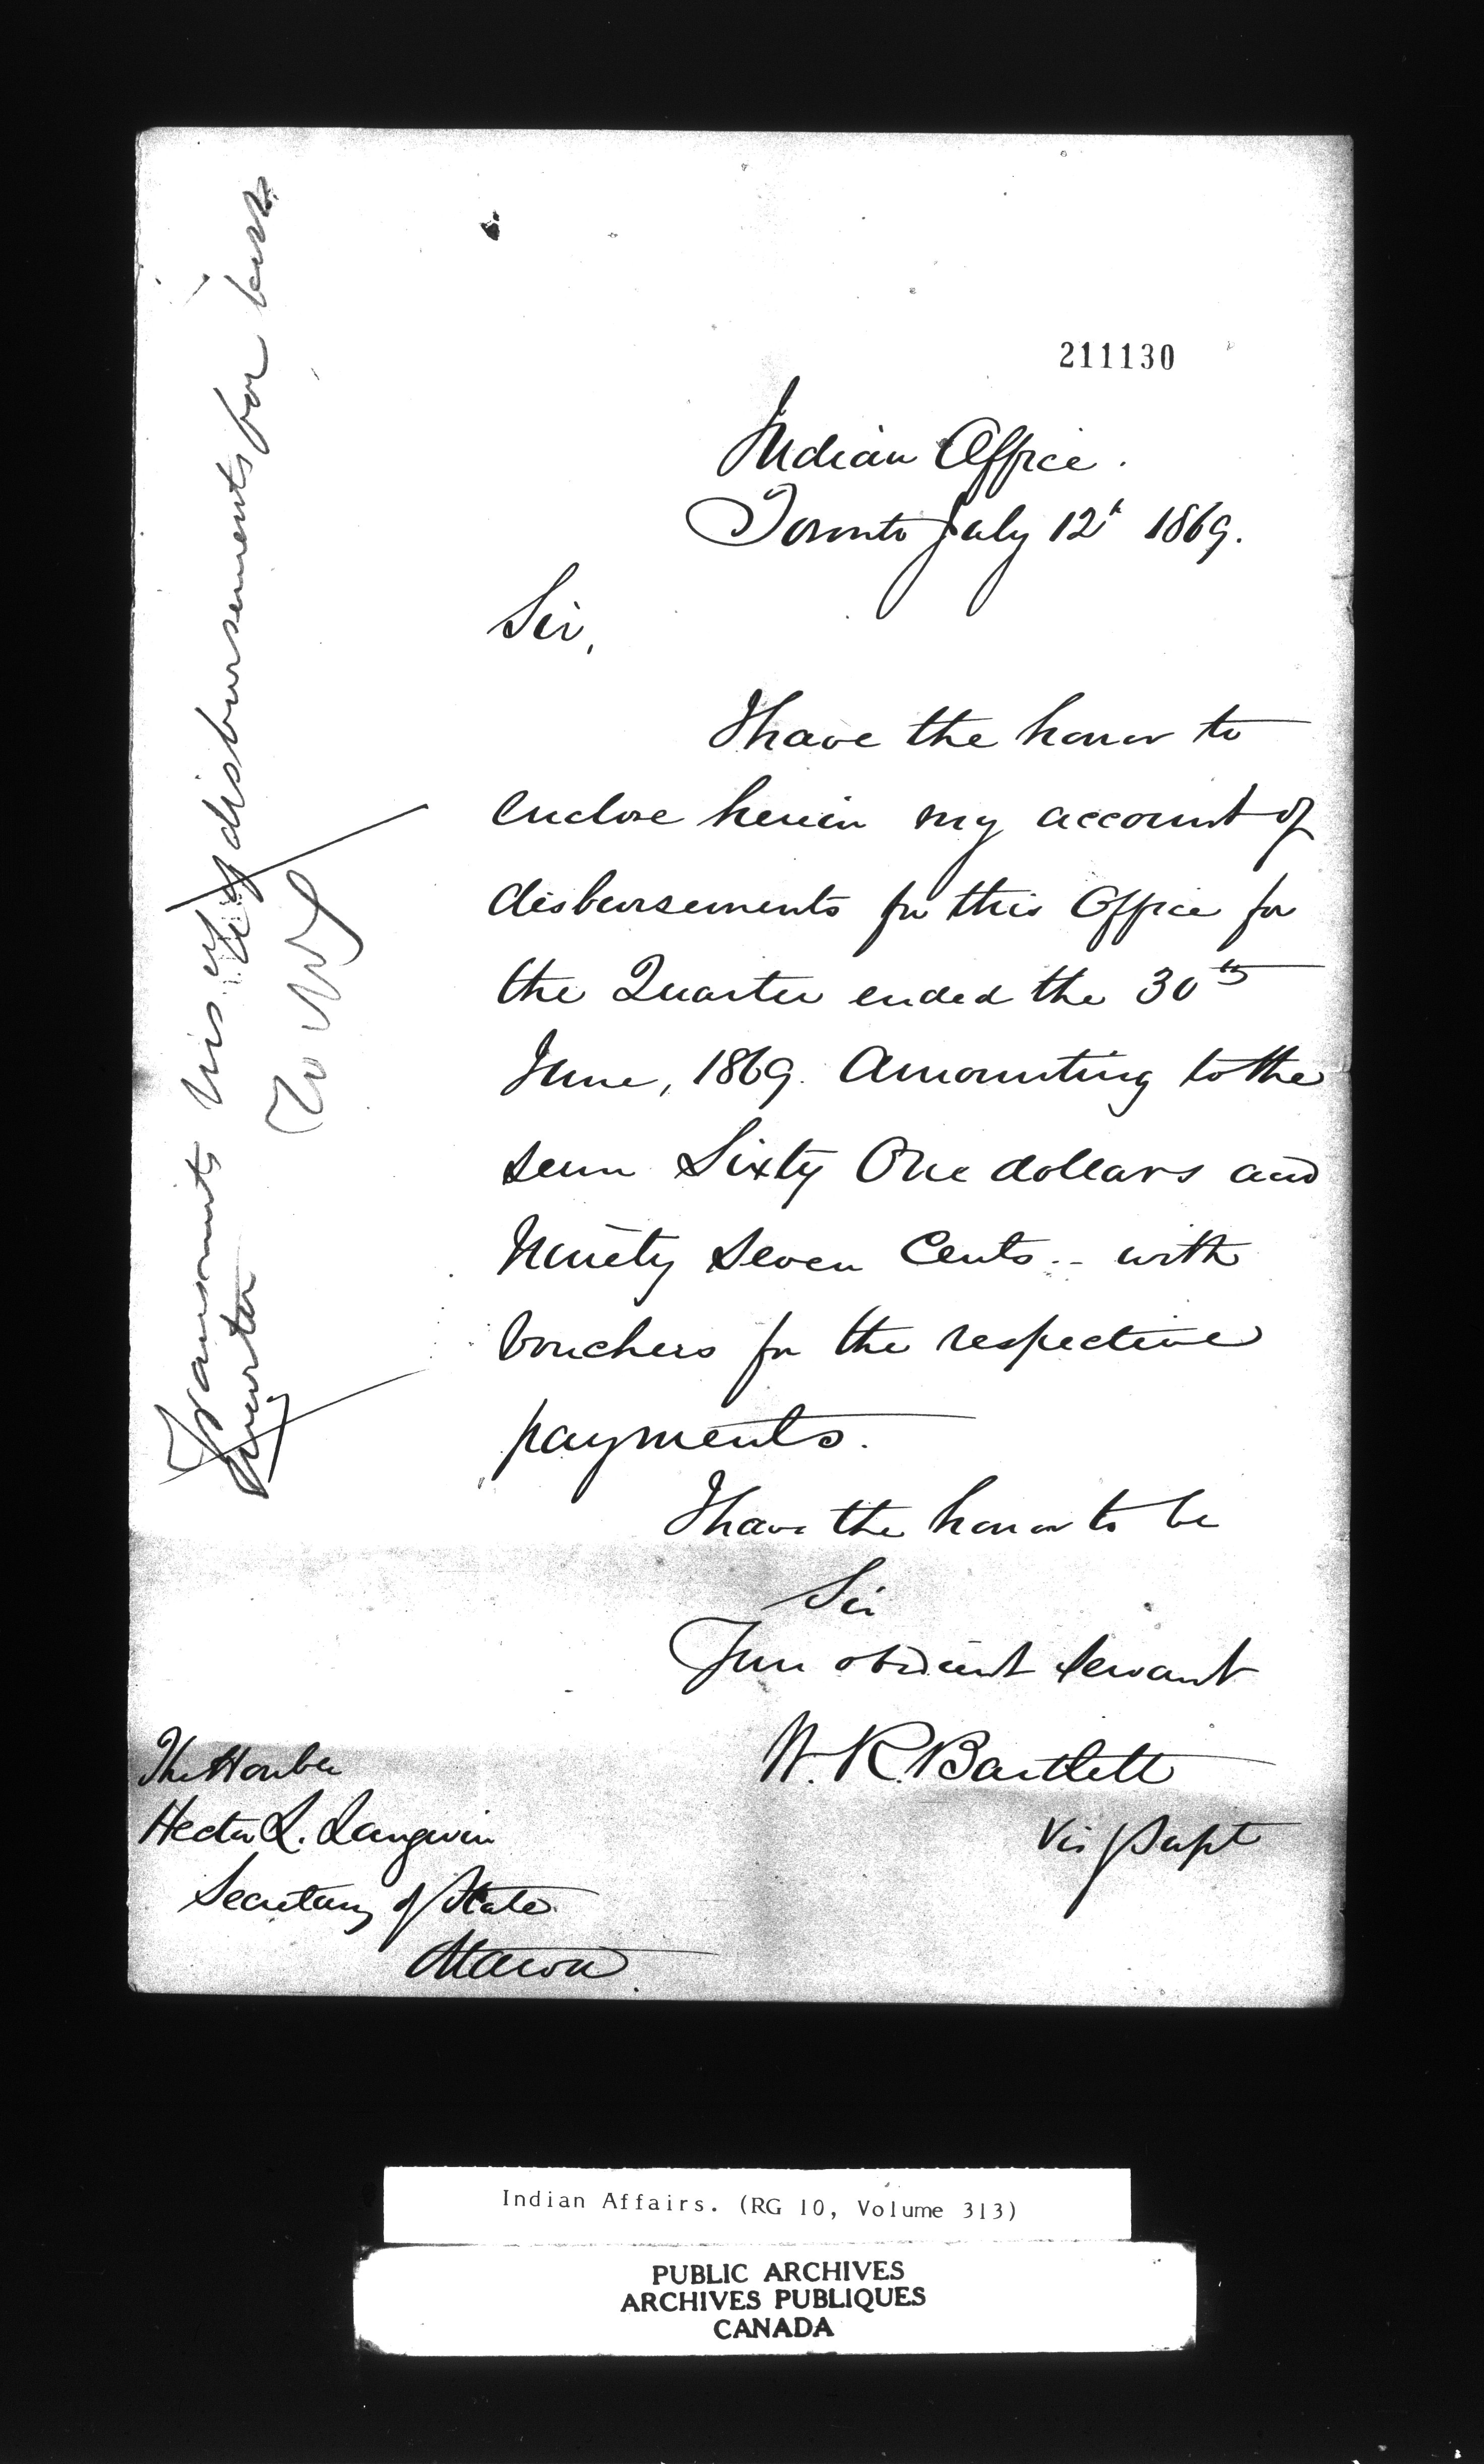 211130
Indian Office.
Toronto July 12t 1869.
Sir,
I have the honor to
enclose herein my account of
disbursements for this Office for
the Quarter ended the 30th
June, 1869. Amounting to the
sum Sixty One dollars and
Ninety Seven Cents.. with
Vouchers for the respective
payments.
I have the honor to be
Sir
Your obedient Servant
W. R. Bartlett
Vis Supt
The Honble
Hector L. Langevin
Secretary of State
Ottawa
Transmits his of disbursements for last
Quarter
Indian Affairs. (RG 10, Volume 313)
PUBLIC ARCHIVES
ARCHIVES PUBLIQUES
CANADA